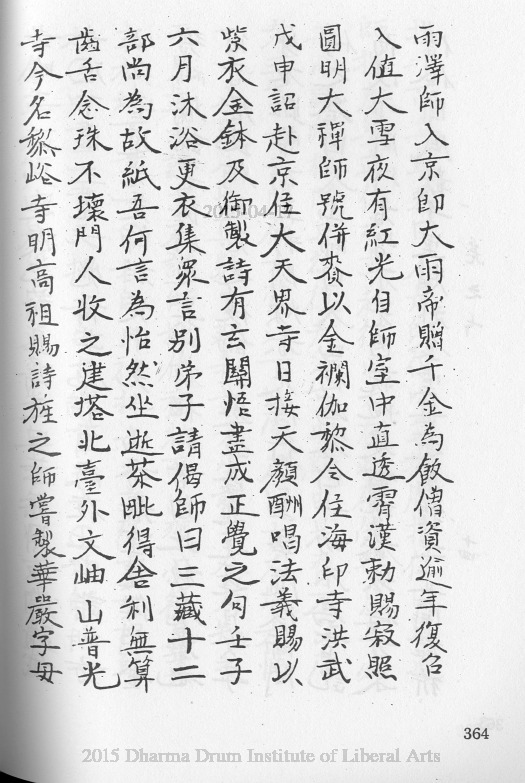 雨澤師入京即大雨帝贈千金為飯僧資逾年復召
入值大雪夜有紅光自師室中直透霄漢勅賜寂照
圓明大禪師號併賚以金襴伽黎令住海印寺洪武
戊申詔赴京住大天界寺日接天顏酬唱法義賜以
紫衣金鉢及御製詩有玄關悟盡成正覺之句壬子
六月沐浴更衣集眾言別弟子請偈師曰三藏十二
部尚為故紙吾何言為怡然坐逝茶毗得舍利無算
齒舌念珠不壞門人收之建塔北臺外文岫山普光
寺今名黎峪寺明高祖賜詩旌之師嘗製華嚴字母
364
2015-04-
2015 Dharma Drum Institute of Liberal Arts